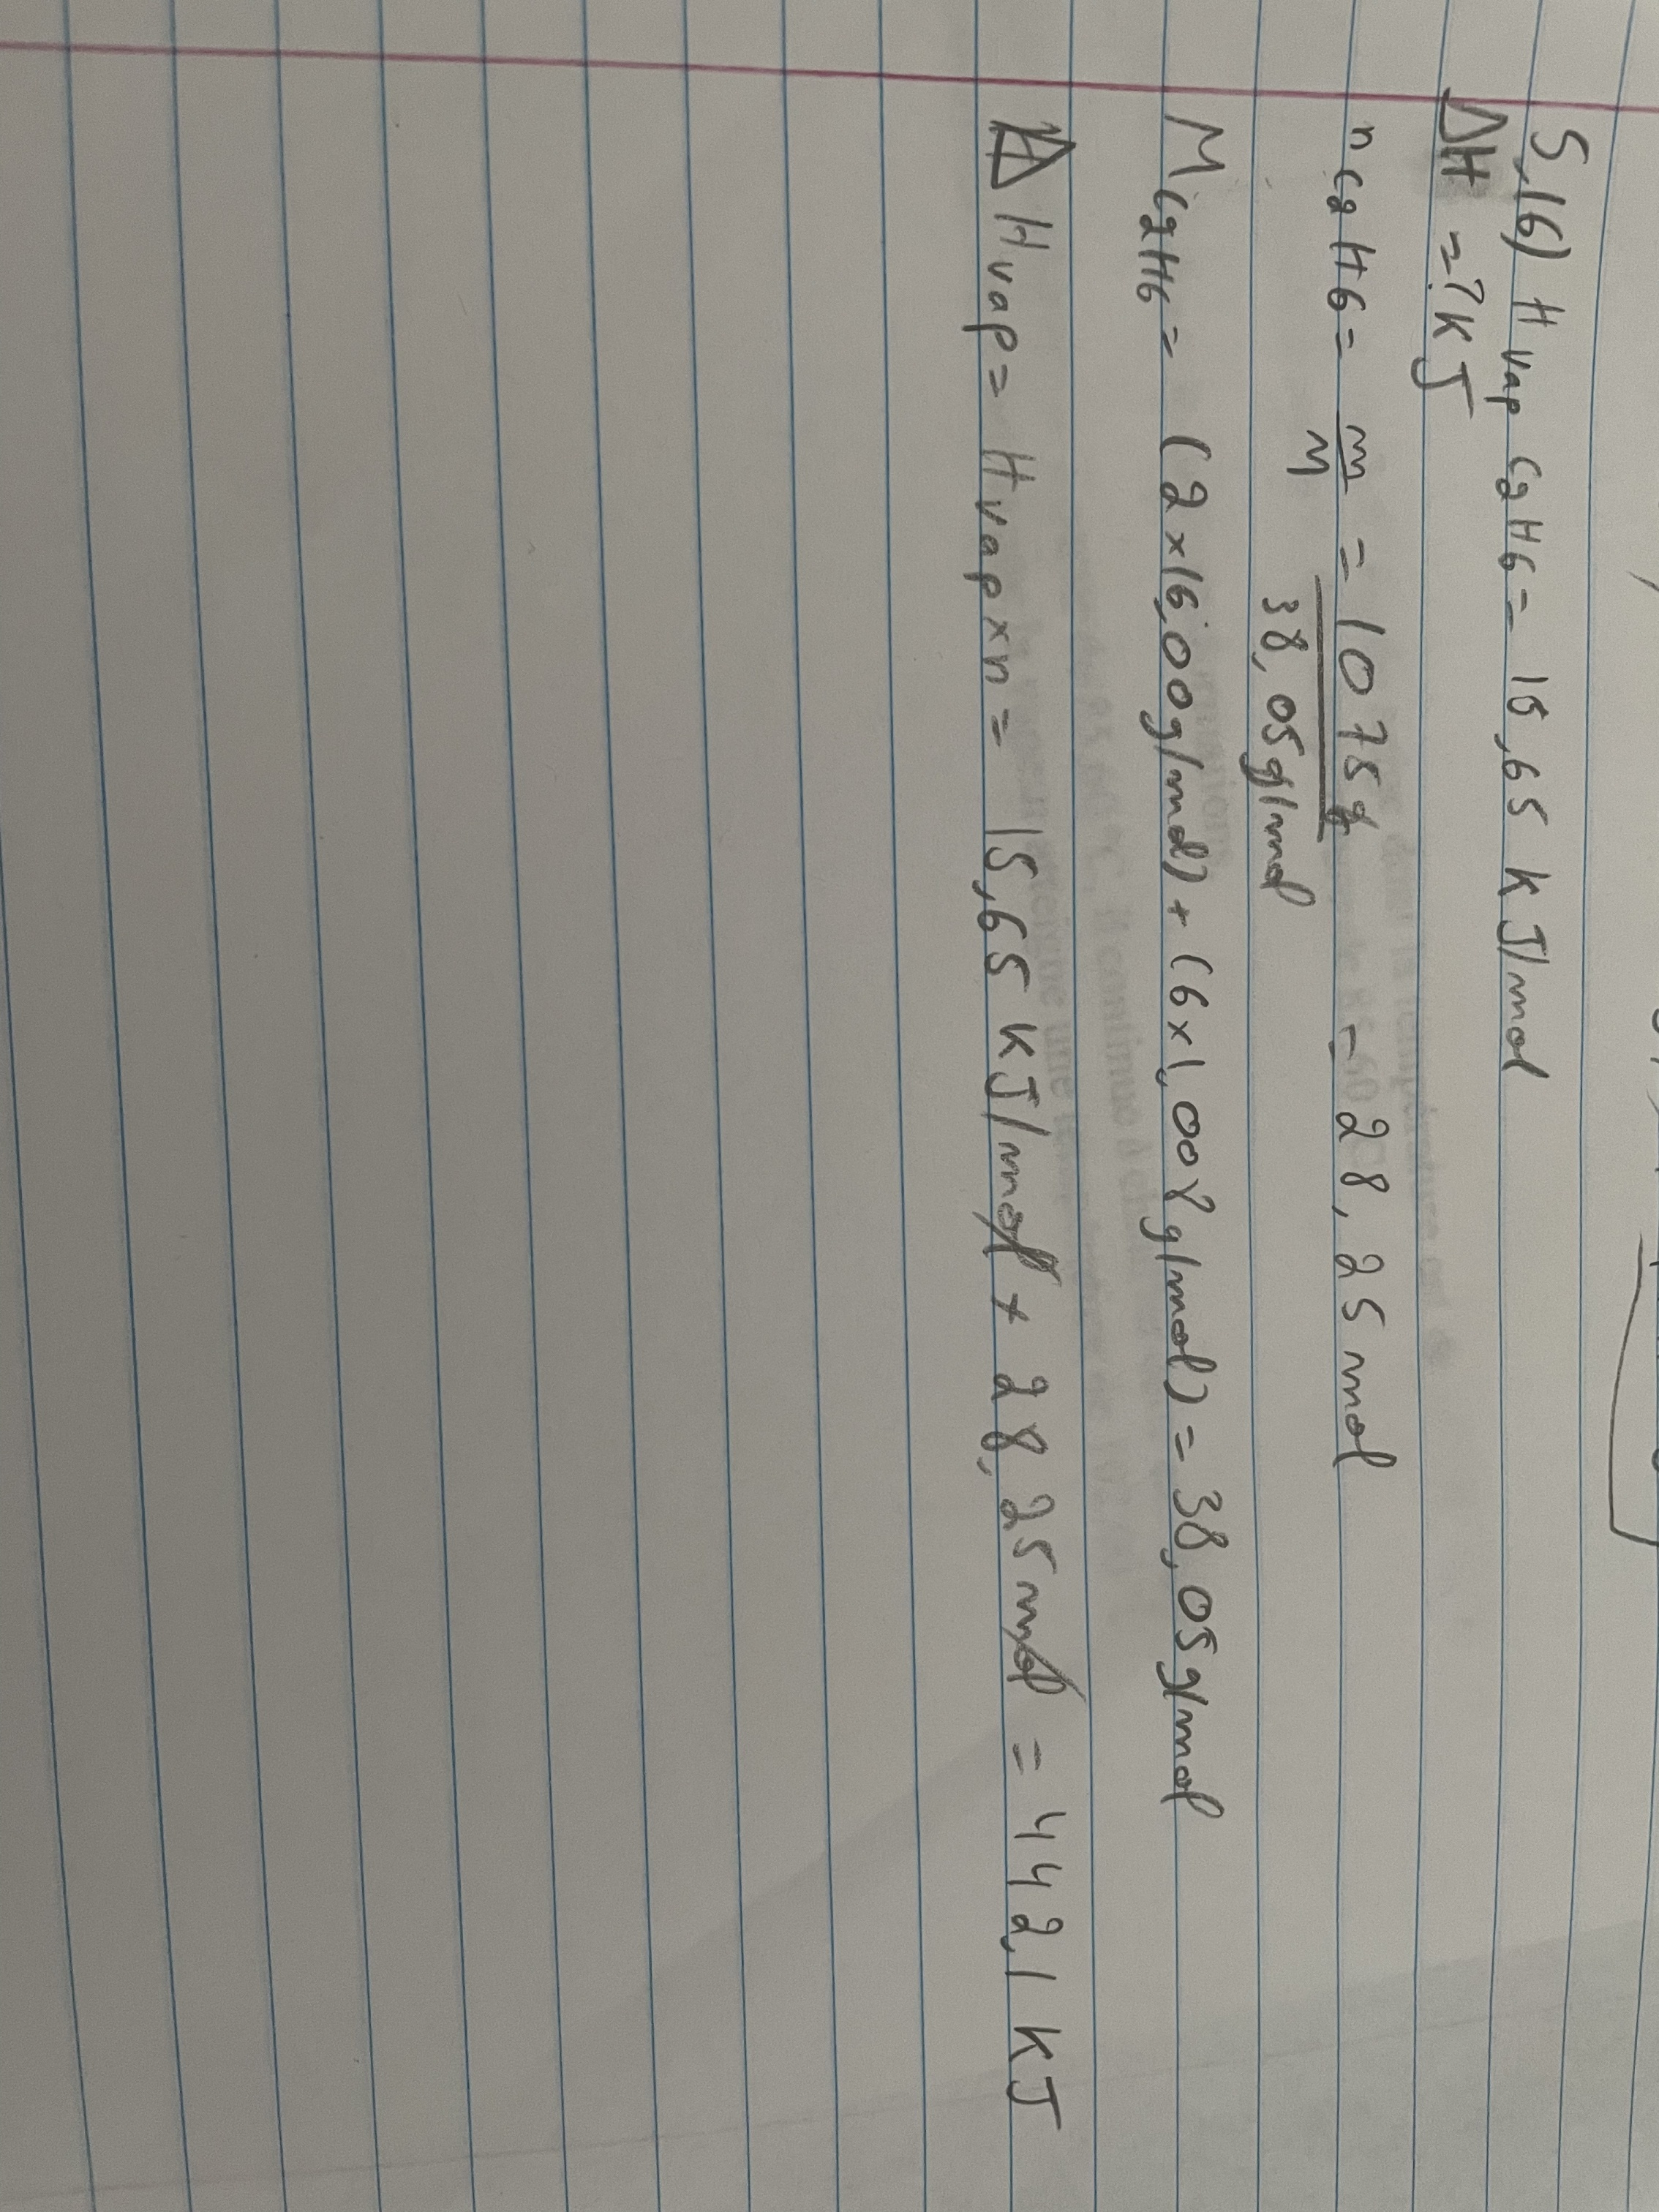 5,16) H vap C2H6 = 15,65 kJ/mol
ΔH = ? kJ
n C2H6 = m/M = 1075g/38,05g/mol = 28,25 mol
M C2H6 = (2x16,00g/mol) + (6x1,008g/mol) = 38,05g/mol
ΔHvap = Hvap x n = 15,65 kJ/mol x 28,25 mol = 442,1 kJ